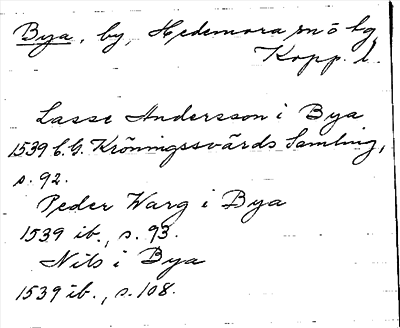 Bya, by, Hedemora sn o bg,
Kopp. l.
Lasse Andersson i Bya
1539 C.G. Kröningssvärds Samling,
s. 92.
Peder Warg i Bya
1539 ib., s. 93.
Nils i Bya
1539 ib., s. 108.